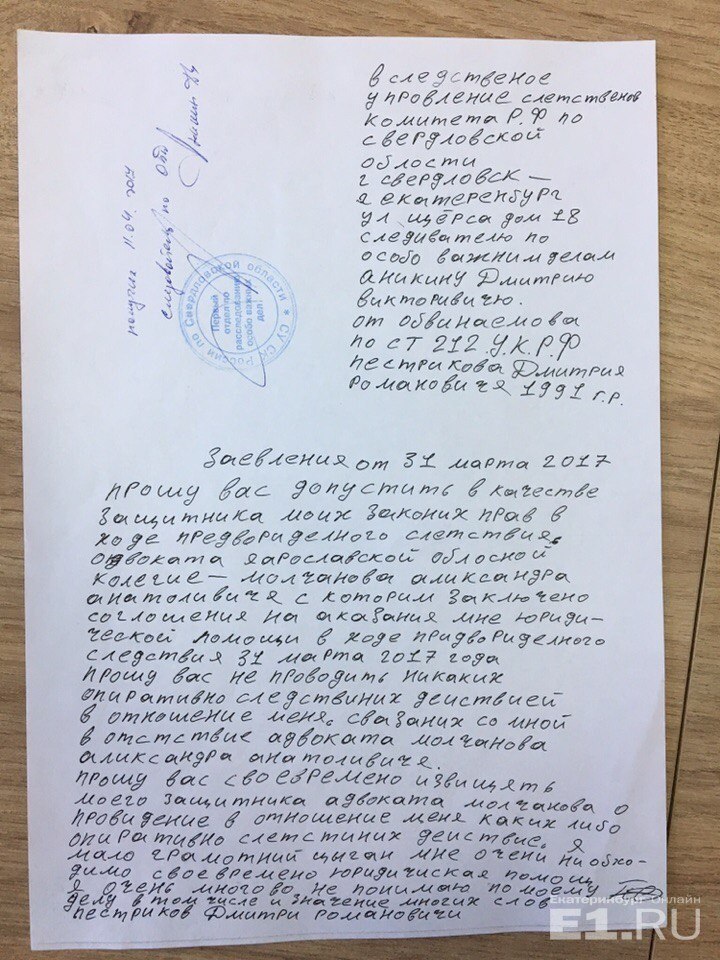 в следственое
управление слетственов
комитета Р.Ф по
свердловской
области
г свердловск —
я екатеренбург
ул щёрса дом 18
следивателю по
особо важним делам
аникину Дмитрию
викторивичю.
от обвинаемова
по ст 212 У.К.Р.Ф
пестрикова Дмитрия
Романовичя 1991 г.р.
получил 11.04.2017
следователь по ОВД
Аникин ДВ
СУ СК России по Свердловской области *
Первый
отдел по
расследованию
особо важных
дел
Заевления от 31 марта 2017
прошу вас допустить в качестве
защитника моих законих прав в
ходе предвориделного слетствия.
адвоката яарославской облосной
колегие — молчанова аликсандра
анатоливичя с которим заключено
соглошения на аказания мне юриди-
ческой помощи в ходе придвориделного
следствия 31 марта 2017 года
прошу вас не проводить никаких
опиративно следствиних действией
в отношение меня. свазаних со мной
в отстствие адвоката молчанова
аликсандра анатоливичя.
прошу вас своевремено извищять
моего защитника адвоката молчанова о
провидение в отношение меня каких либо
опиративно слетстиних действие. я
мало грамотний цыган мне очени ниобхо-
димо своевремено юридичиская помощ
я очень многово не понимаю по моему
делу в том числе и значение многих слов
пестриков Дмитри романовичи
Екатеринбург Онлайн
E1.RU